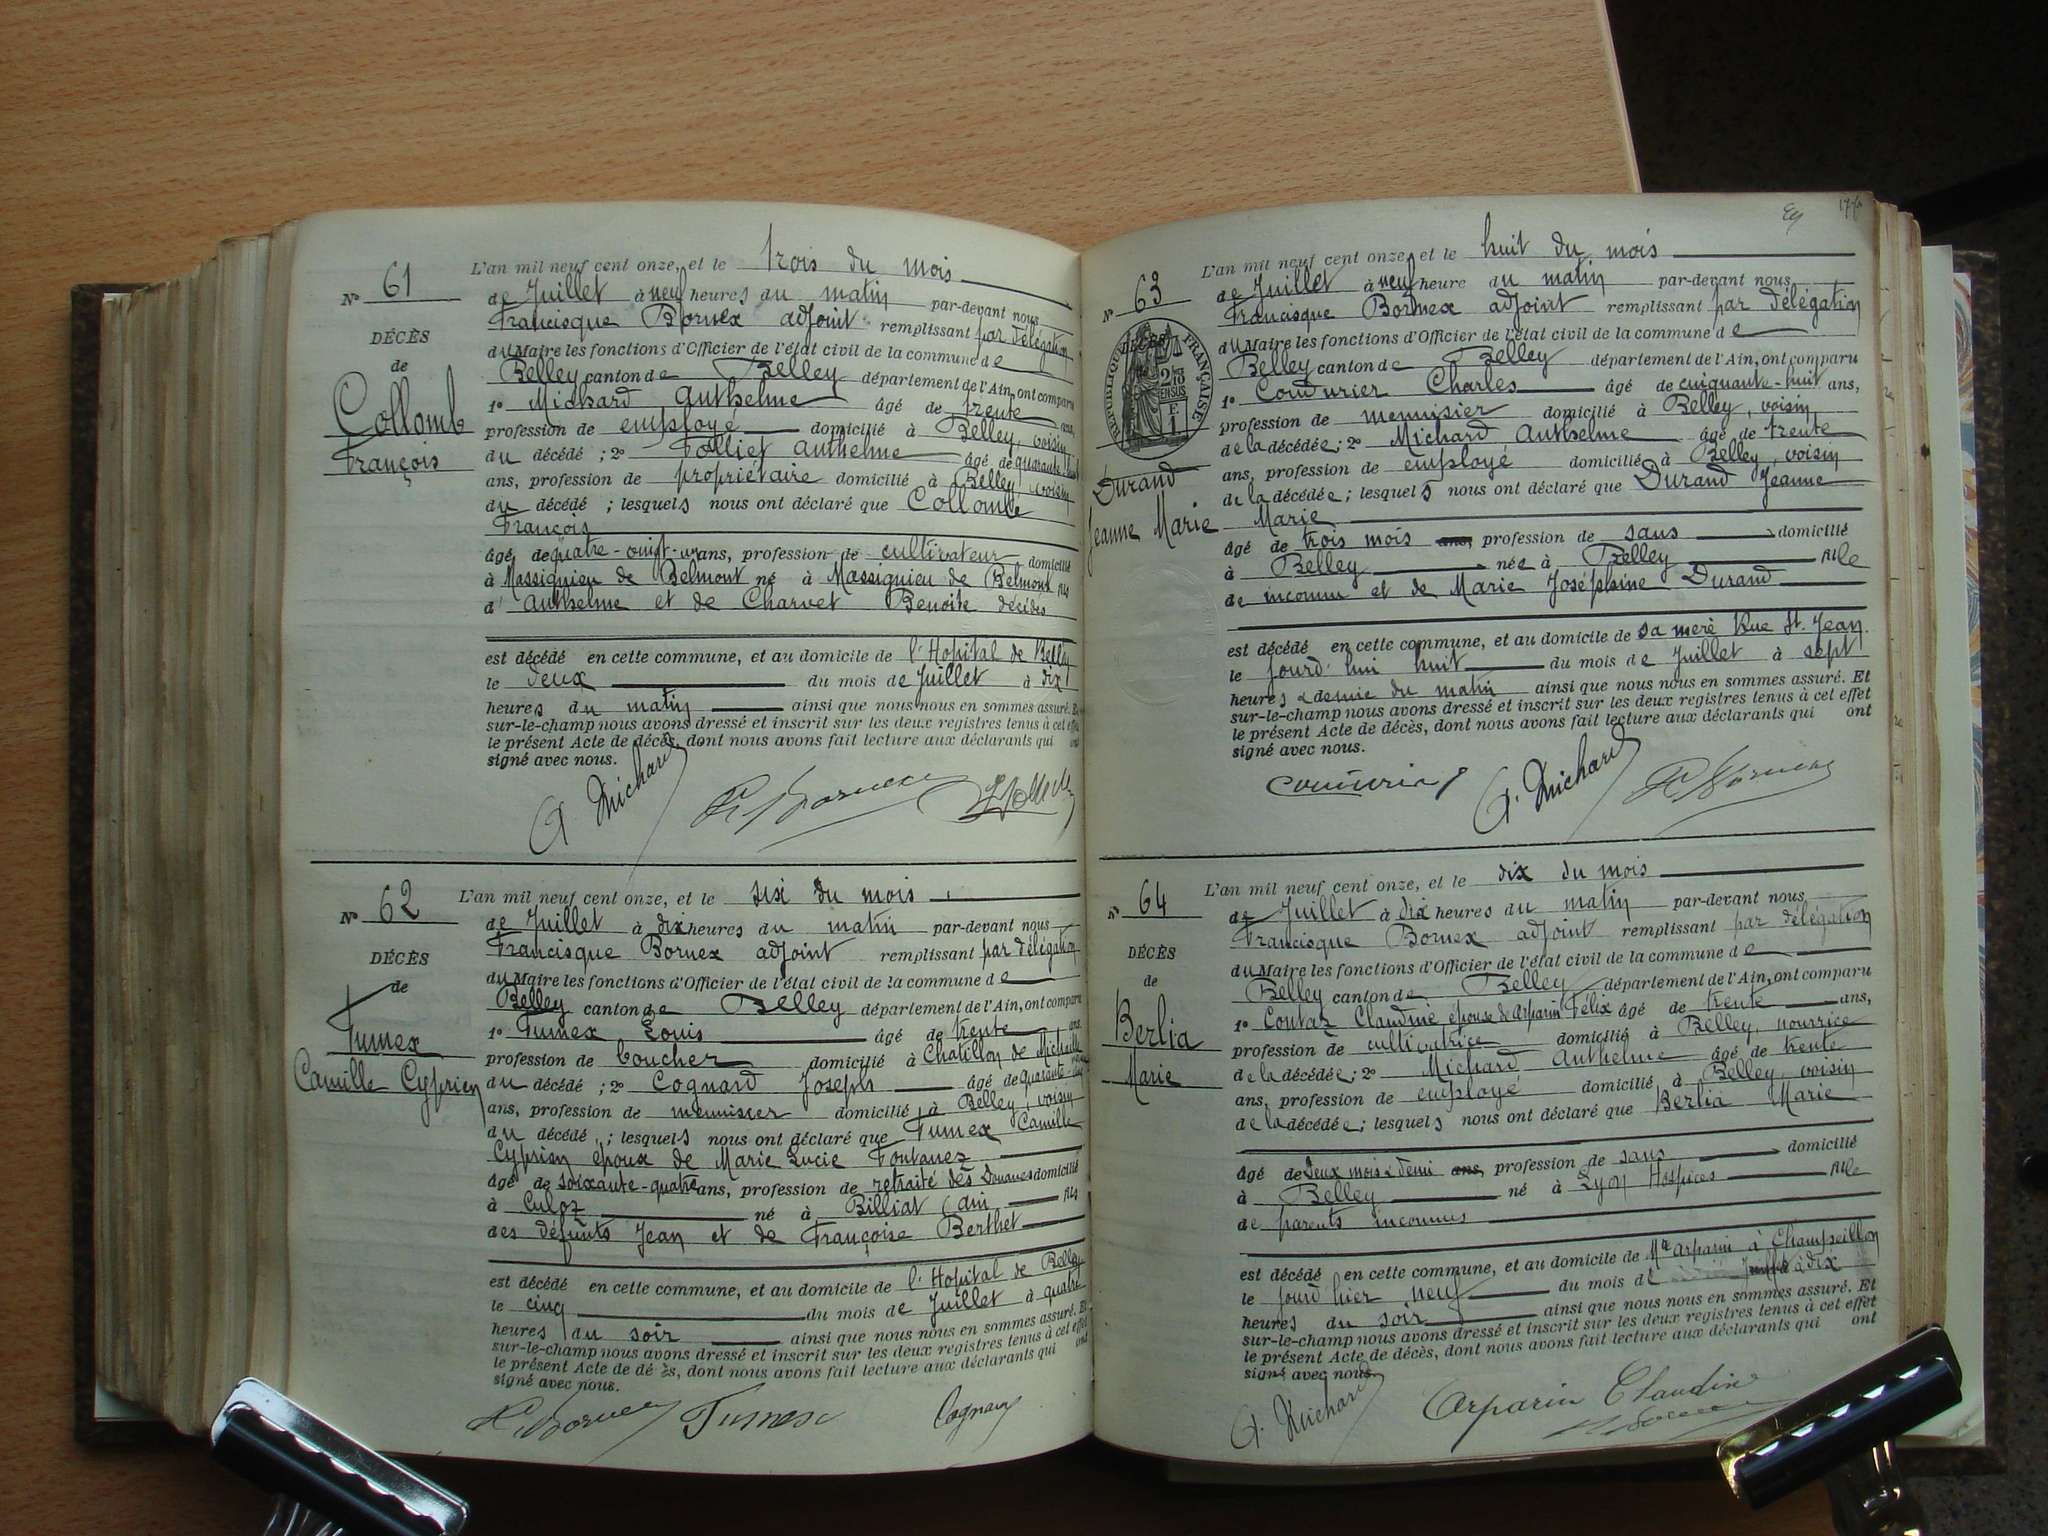 N° 61
DÉCÈS
de
Collomb
François
L'an mil neuf cent onze, et le trois du mois
de Juillet à neuf heures du matin par-devant nous
Francisque Bornex adjoint remplissant par délégation
du Maire les fonctions d'Officier de l'état civil de la commune de
Belley canton de Belley département de l'Ain, ont comparu
1° Michard Anthelme âgé de trente ans,
profession de employé domicilié à Belley, voisin
du décédé ; 2° Folliet Anthelme âgé de quarante
ans, profession de propriétaire domicilié à Belley, voisin
du décédé ; lesquels nous ont déclaré que Collomb
François
âgé de quatre-vingt-un ans, profession de cultivateur domicilié
à Massignieu de Belmont né à Massignieu de Belmont fils
d' Anthelme et de Charvet Benoite décédés
est décédé en cette commune, et au domicile de l'Hopital de Belley
le deux du mois de Juillet à dix
heures du matin ainsi que nous nous en sommes assuré. Et
sur-le-champ nous avons dressé et inscrit sur les deux registres tenus à cet effet
le présent Acte de décès, dont nous avons fait lecture aux déclarants qui ont
signé avec nous.
A. Michard Fr Bornex
N° 62
DÉCÈS
de
Fumex
Camille Cyprien
L'an mil neuf cent onze, et le six du mois
de Juillet à dix heures du matin par-devant nous
Francisque Bornex adjoint remplissant par délégation
du Maire les fonctions d'Officier de l'état civil de la commune de
Belley canton de Belley département de l'Ain, ont comparu
1° Fumex Louis âgé de trente ans
profession de boucher domicilié à Chatillon de Michaille
du décédé ; 2° Cognard Joseph âgé de quarante
ans, profession de menuisier domicilié à Belley, voisin
du décédé ; lesquels nous ont déclaré que Fumex Camille
Cyprien époux de Marie Lucie Fontanez
âgé de soixante-quatre ans, profession de retraité des Douanes domicilié
à Culoz né à Billiat (Ain fils
des défunts Jean et de Françoise Berthet
est décédé en cette commune, et au domicile de l'Hopital de Belley
le cinq du mois de Juillet à quatre
heures du soir ainsi que nous nous en sommes assuré. Et
sur-le-champ nous avons dressé et inscrit sur les deux registres tenus à cet effet
le présent Acte de dé ès, dont nous avons fait lecture aux déclarants qui ont
signé avec nous.
Fr Bornex Fumex Cognard
N° 63
DÉCÈS
RÉPUBLIQUE FRANÇAISE
Durand
Jeanne Marie
L'an mil neuf cent onze, et le huit du mois
de Juillet à neuf heure du matin par-devant nous
Francisque Bornex adjoint remplissant par délégation
du Maire les fonctions d'Officier de l'état civil de la commune de
Belley canton de Belley département de l'Ain, ont comparu
1° Coudurier Charles âgé de cinquante-huit ans,
profession de menuisier domicilié à Belley, voisin
de la décédée ; 2° Michard Anthelme âgé de trente
ans, profession de employé domicilié à Belley, voisin
de la décédée ; lesquels nous ont déclaré que Durand Jeanne
Marie
âgé de trois mois ans, profession de sans domicilié
à Belley née à Belley fille
de inconnu et de Marie Joséphine Durand
est décédé en cette commune, et au domicile de sa mère Rue St. Jean
le jourd'hui huit du mois de Juillet à sept
heures & demie du matin ainsi que nous nous en sommes assuré. Et
sur-le-champ nous avons dressé et inscrit sur les deux registres tenus à cet effet
le présent Acte de décès, dont nous avons fait lecture aux déclarants qui ont
signé avec nous.
A. Michard Fr Bornex
N° 64
DÉCÈS
de
Berlia
Marie
L'an mil neuf cent onze, et le dix du mois
de Juillet à dix heures du matin par-devant nous
Francisque Bornex adjoint remplissant par délégation
du Maire les fonctions d'Officier de l'état civil de la commune de
Belley canton de Belley département de l'Ain, ont comparu
1° Coutaz Claudine épouse de Arparin Félix âgé de trente ans,
profession de cultivatrice domicilié à Belley, nourrice
de la décédée ; 2° Michard Anthelme âgé de trente
ans, profession de employé domicilié à Belley, voisin
de la décédée ; lesquels nous ont déclaré que Berlia Marie
âgé de deux mois & demi ans, profession de sans domicilié
à Belley né à Lyon Hospices fille
de parents inconnus
est décédé en cette commune, et au domicile de Arparin à Champeillon
le jourd'hier neuf du mois de à dix
heures du soir ainsi que nous nous en sommes assuré. Et
sur-le-champ nous avons dressé et inscrit sur les deux registres tenus à cet effet
le présent Acte de décès, dont nous avons fait lecture aux déclarants qui ont
signé avec nous.
A. Michard Arparin Claudine